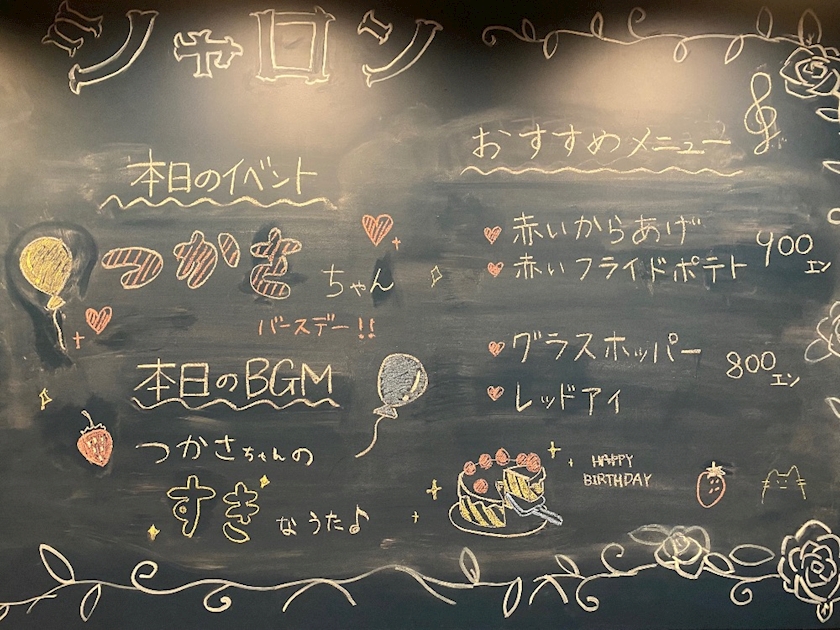 シャロン
本日のイベント
つかさちゃん
バースデー!!
本日のBGM
つかさちゃんの
すきなうた♪
おすすめメニュー
赤いからあげ
赤いフライドポテト
900エン
グラスホッパー
レッドアイ
800エン
HAPPY
BIRTHDAY